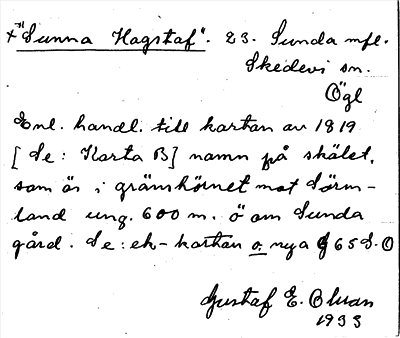 + "Sunna Hagstaf". 23. Sunda mfl.
Skedevi sn.
Ögl
Enl. handl. till kartan av 1819
[Se: Karta B] namn på skälet,
som är i gränshörnet mot Sörm-
land ung. 600 m. ö om Sunda
gård. Se: ek-kartan o. nya G 65 S.O
Gustaf E. Olsson
1933